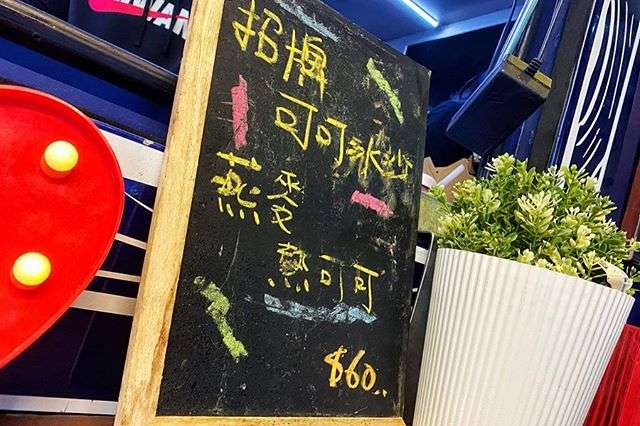 招牌
可可冰沙
燕麥
熱可可
$60..